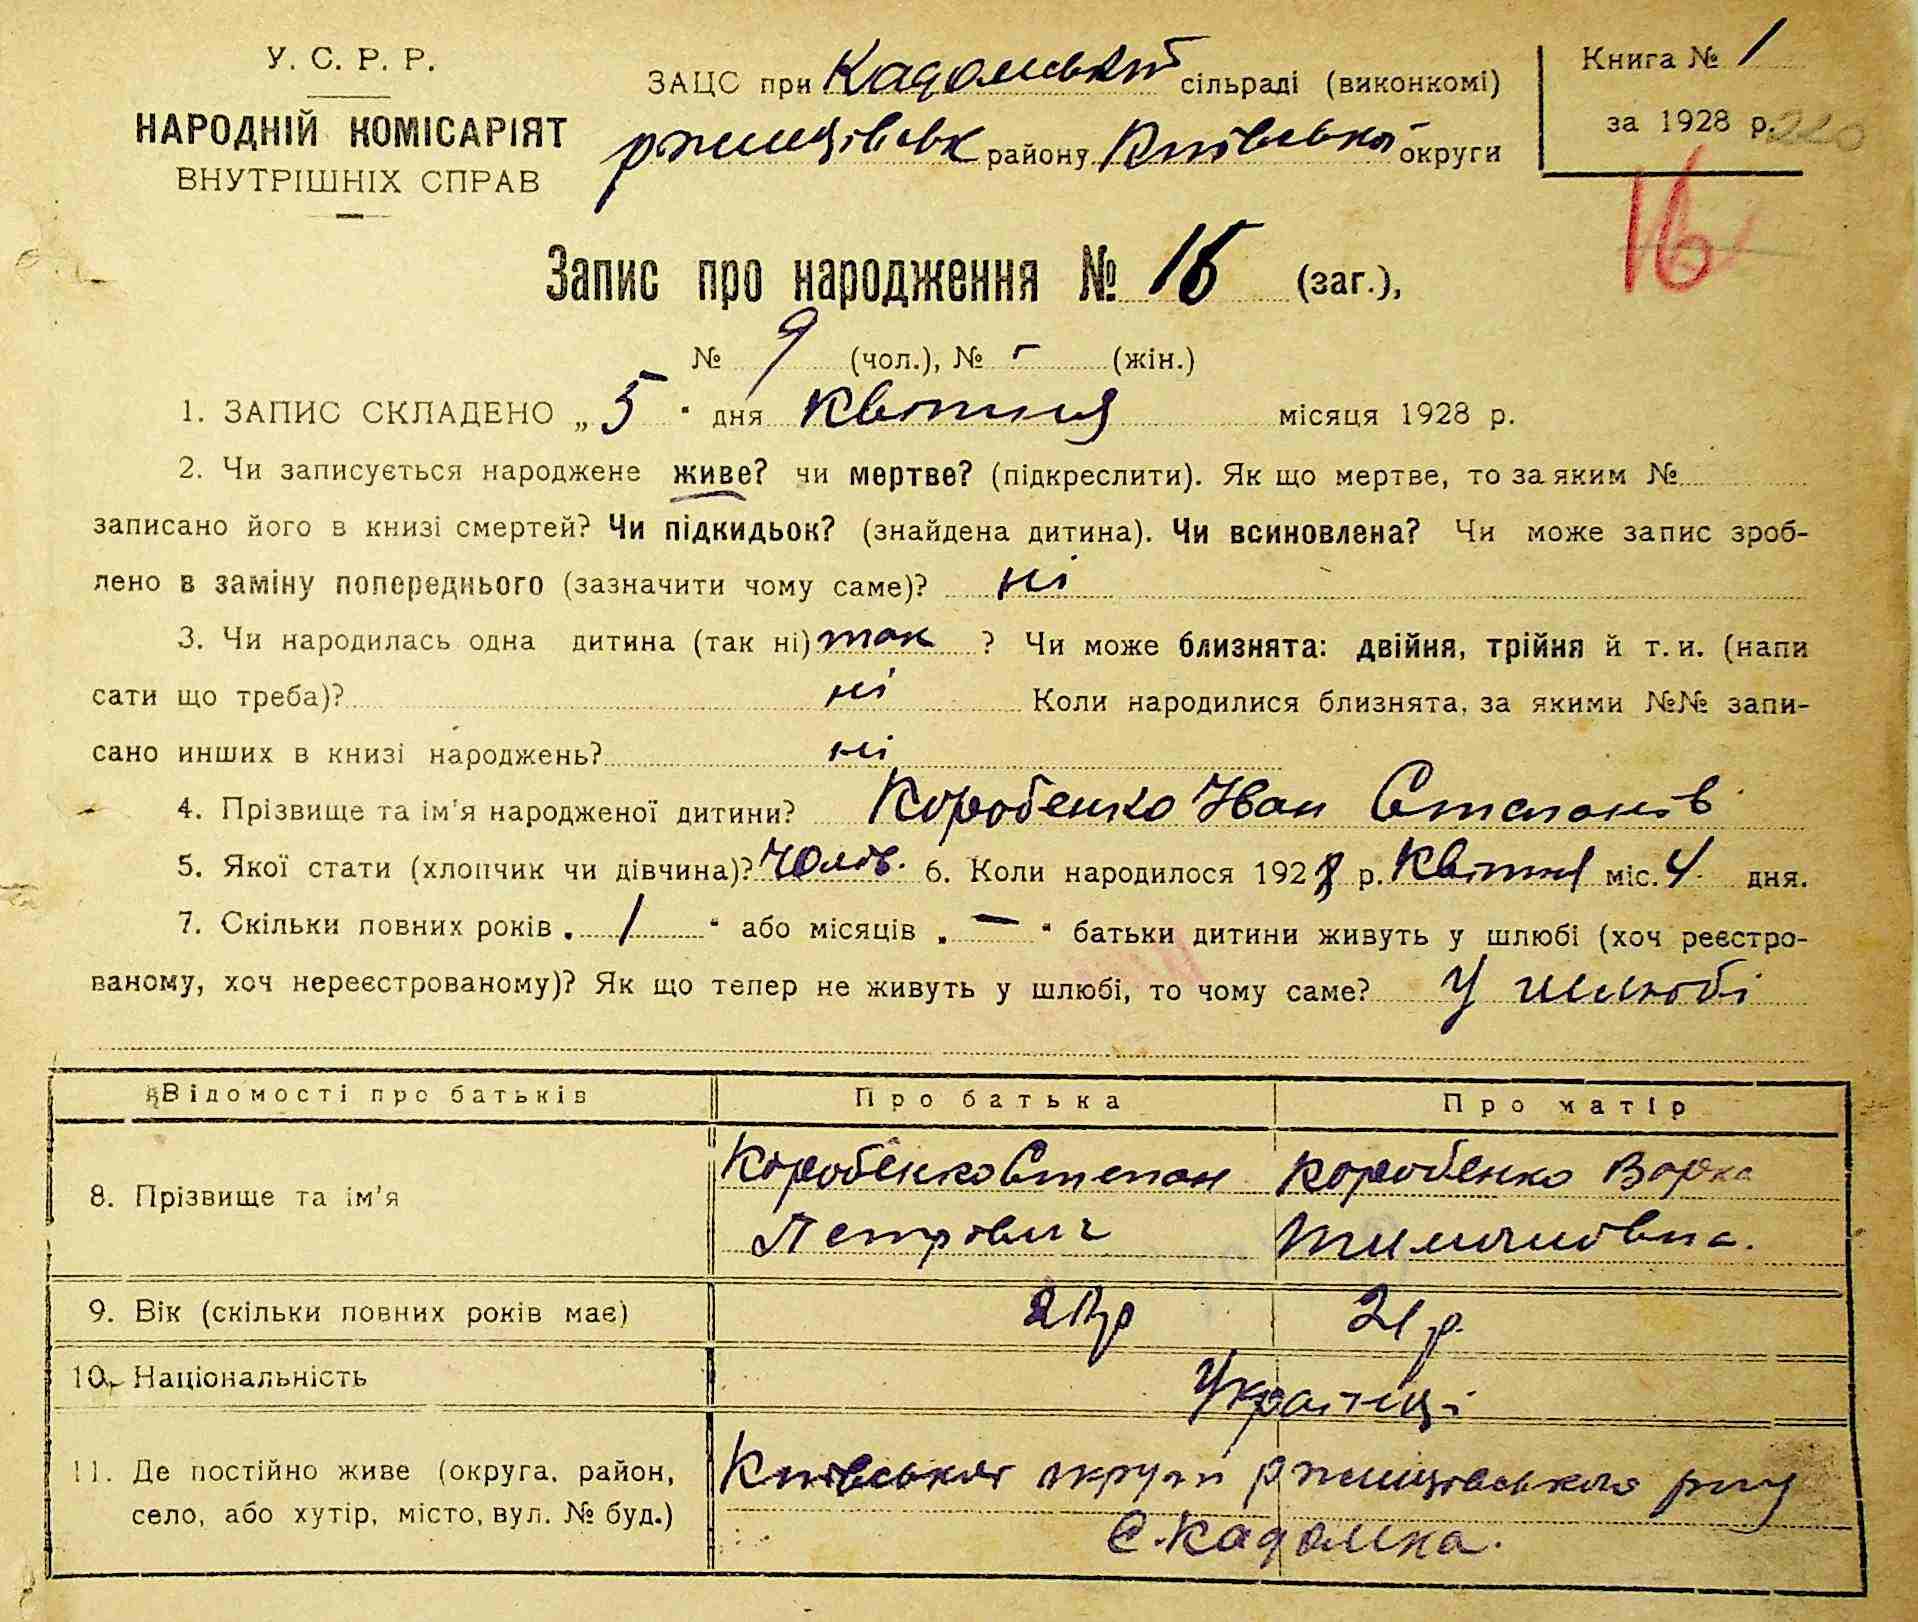 У. С. Р. Р.
НАРОДНІЙ КОМІСАРІЯТ
ВНУТРІШНІХ СПРАВ
ЗАЦС при Кадомській сільраді (виконкомі)
Ржищівськ району Київської округи
Книга № 1
за 1928 р.
16
Запис про народження № 16 (заг.),
№ 9 (чол.), № - (жін.)
1. ЗАПИС СКЛАДЕНО „5" дня Квітня місяця 1928 р.
2. Чи записується народжене живе? чи мертве? (підкреслити). Як що мертве, то за яким №
записано його в книзі смертей? Чи підкидьок? (знайдена дитина). Чи всиновлена? Чи може запис зроб-
лено в заміну попереднього (зазначити чому саме)? ні
3. Чи народилась одна дитина (так ні) так ? Чи може близнята: двійня, трійня й т. и. (напи
сати що треба)? ні Коли народилися близнята, за якими №№ запи-
сано инших в книзі народжень? ні
4. Прізвище та ім'я народженої дитини? Коробенко Іван Степанів
5. Якої стати (хлопчик чи дівчина)? Чолов. 6. Коли народилося 1928 р. Квітня міс. 4 дня.
7. Скільки повних років „1" або місяців „—" батьки дитини живуть у шлюбі (хоч реєстро-
ваному, хоч нереєстрованому)? Як що тепер не живуть у шлюбі, то чому саме? У шлюбі
Відомості про батьків Про батька Про матір
8. Прізвище та ім'я
Коробенко Степан
Петрович
Коробенко Варка
9. Вік (скільки повних років має) 21 р. 21 р.
10. Національність Українці
11. Де постійно живе (округа, район,
село, або хутір, місто, вул. № буд.)
Київської округи Ржищівського р-ну
С. Кадомка.